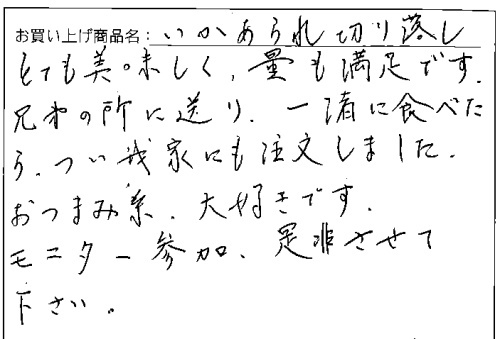 お買い上げ商品名：いかあられ切り落し
とても美味しく、量も満足です.
兄弟の所に送り、一緒に食べた
ら、つい我家にも注文しました.
おつまみ系、大好きです.
モニター参加、是非させて
下さい。